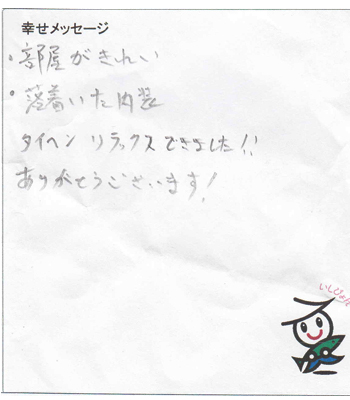 幸せメッセージ
・部屋がきれい
・落着いた内装
タイヘン リラックスできました!!
ありがとうございます!